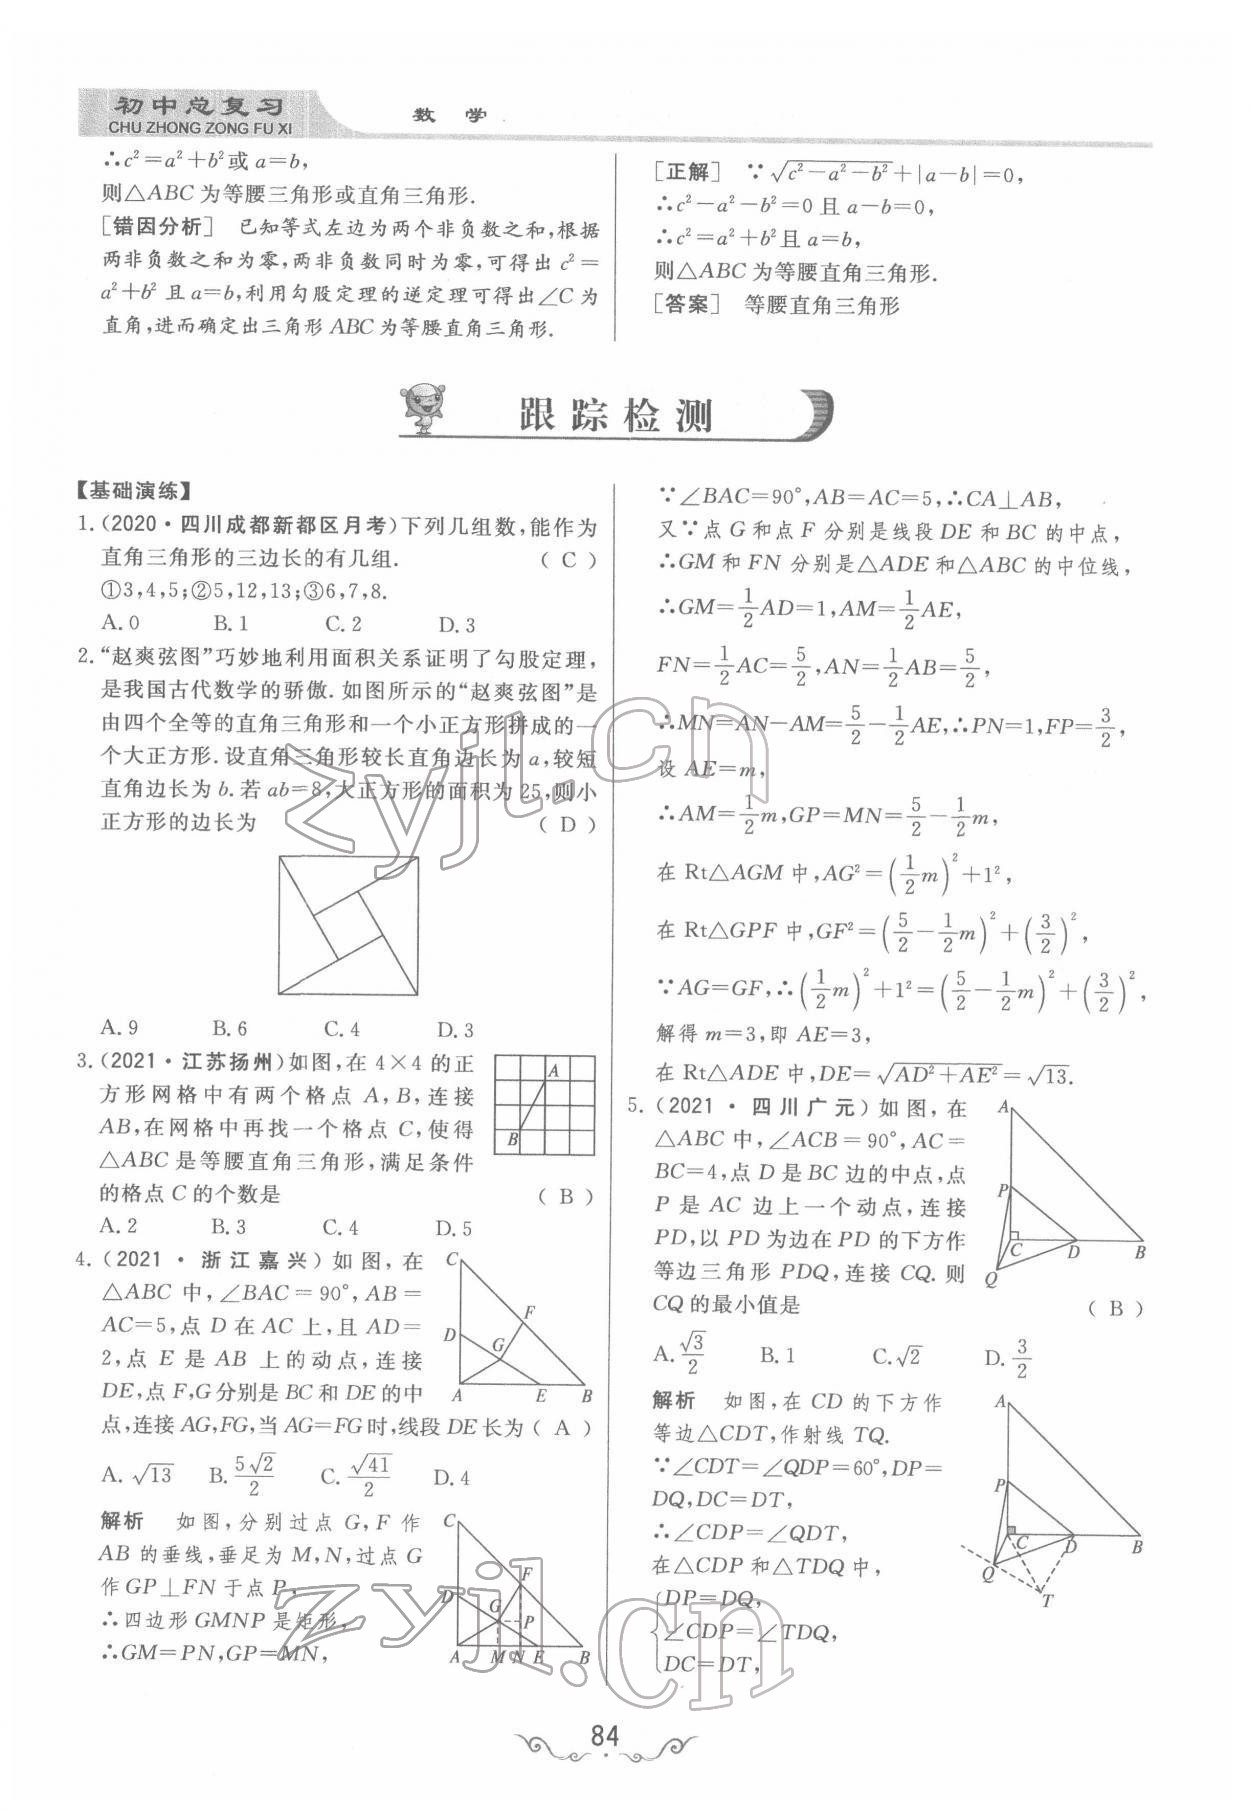 初中总复习
CHU ZHONG ZONG FU XI
数 学
∴c²=a²+b²或a=b,
则△ABC为等腰三角形或直角三角形.
[错因分析] 已知等式左边为两个非负数之和,根据
两非负数之和为零,两非负数同时为零,可得出c²=
a²+b²且a=b,利用勾股定理的逆定理可得出∠C为
直角,进而确定出三角形ABC为等腰直角三角形.
[正解] ∵√(c²-a²-b²)+|a-b|=0,
∴c²-a²-b²=0且a-b=0,
∴c²=a²+b²且a=b,
则△ABC为等腰直角三角形.
[答案] 等腰直角三角形
跟踪检测
【基础演练】
1.(2020·四川成都新都区月考)下列几组数,能作为
直角三角形的三边长的有几组. ( C )
①3,4,5;②5,12,13;③6,7,8.
A.0 B.1 C.2 D.3
2.“赵爽弦图”巧妙地利用面积关系证明了勾股定理,
是我国古代数学的骄傲.如图所示的“赵爽弦图”是
由四个全等的直角三角形和一个小正方形拼成的一
个大正方形.设直角三角形较长直角边长为a,较短
直角边长为b.若ab=8,大正方形的面积为25,则小
正方形的边长为 ( D )
A.9 B.6 C.4 D.3
3.(2021·江苏扬州)如图,在4×4的正
方形网格中有两个格点A,B,连接
AB,在网格中再找一个格点C,使得
△ABC是等腰直角三角形,满足条件
的格点C的个数是 ( B )
A
B
A.2 B.3 C.4 D.5
4.(2021·浙江嘉兴)如图,在
△ABC中,∠BAC=90°,AB=
AC=5,点D在AC上,且AD=
2,点E是AB上的动点,连接
DE,点F,G分别是BC和DE的中
点,连接AG,FG,当AG=FG时,线段DE长为( A )
C
F
D
G
A E B
A.√13 B.5√2/2 C.√41/2 D.4
解析 如图,分别过点G,F作
AB的垂线,垂足为M,N,过点G
作GP⊥FN于点P,
∴四边形GMNP是矩形,
∴GM=PN,GP=MN,
C
F
D
G P
A M N E B
∵∠BAC=90°,AB=AC=5,∴CA⊥AB,
又∵点G和点F分别是线段DE和BC的中点,
∴GM和FN分别是△ADE和△ABC的中位线,
∴GM=1/2AD=1,AM=1/2AE,
FN=1/2AC=5/2,AN=1/2AB=5/2,
∴MN=AN-AM=5/2-1/2AE,∴PN=1,FP=3/2,
设AE=m,
∴AM=1/2m,GP=MN=5/2-1/2m,
在Rt△AGM中,AG²=(1/2m)²+1²,
在Rt△GPF中,GF²=(5/2-1/2m)²+(3/2)²,
∵AG=GF,∴(1/2m)²+1²=(5/2-1/2m)²+(3/2)²,
解得m=3,即AE=3,
在Rt△ADE中,DE=√(AD²+AE²)=√13.
5.(2021·四川广元)如图,在
△ABC中,∠ACB=90°,AC=
BC=4,点D是BC边的中点,点
P是AC边上一个动点,连接
PD,以PD为边在PD的下方作
等边三角形PDQ,连接CQ.则
CQ的最小值是 ( B )
A
P
C D B
Q
A.√3/2 B.1 C.√2 D.3/2
解析 如图,在CD的下方作
等边△CDT,作射线TQ.
∵∠CDT=∠QDP=60°,DP=
DQ,DC=DT,
∴∠CDP=∠QDT,
在△CDP和△TDQ中,
{DP=DQ,
∠CDP=∠TDQ,
DC=DT,
A
P
C D B
Q
T
84
zyjl.cn
zyjl.cn